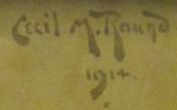 Cecil M. Round
1914.